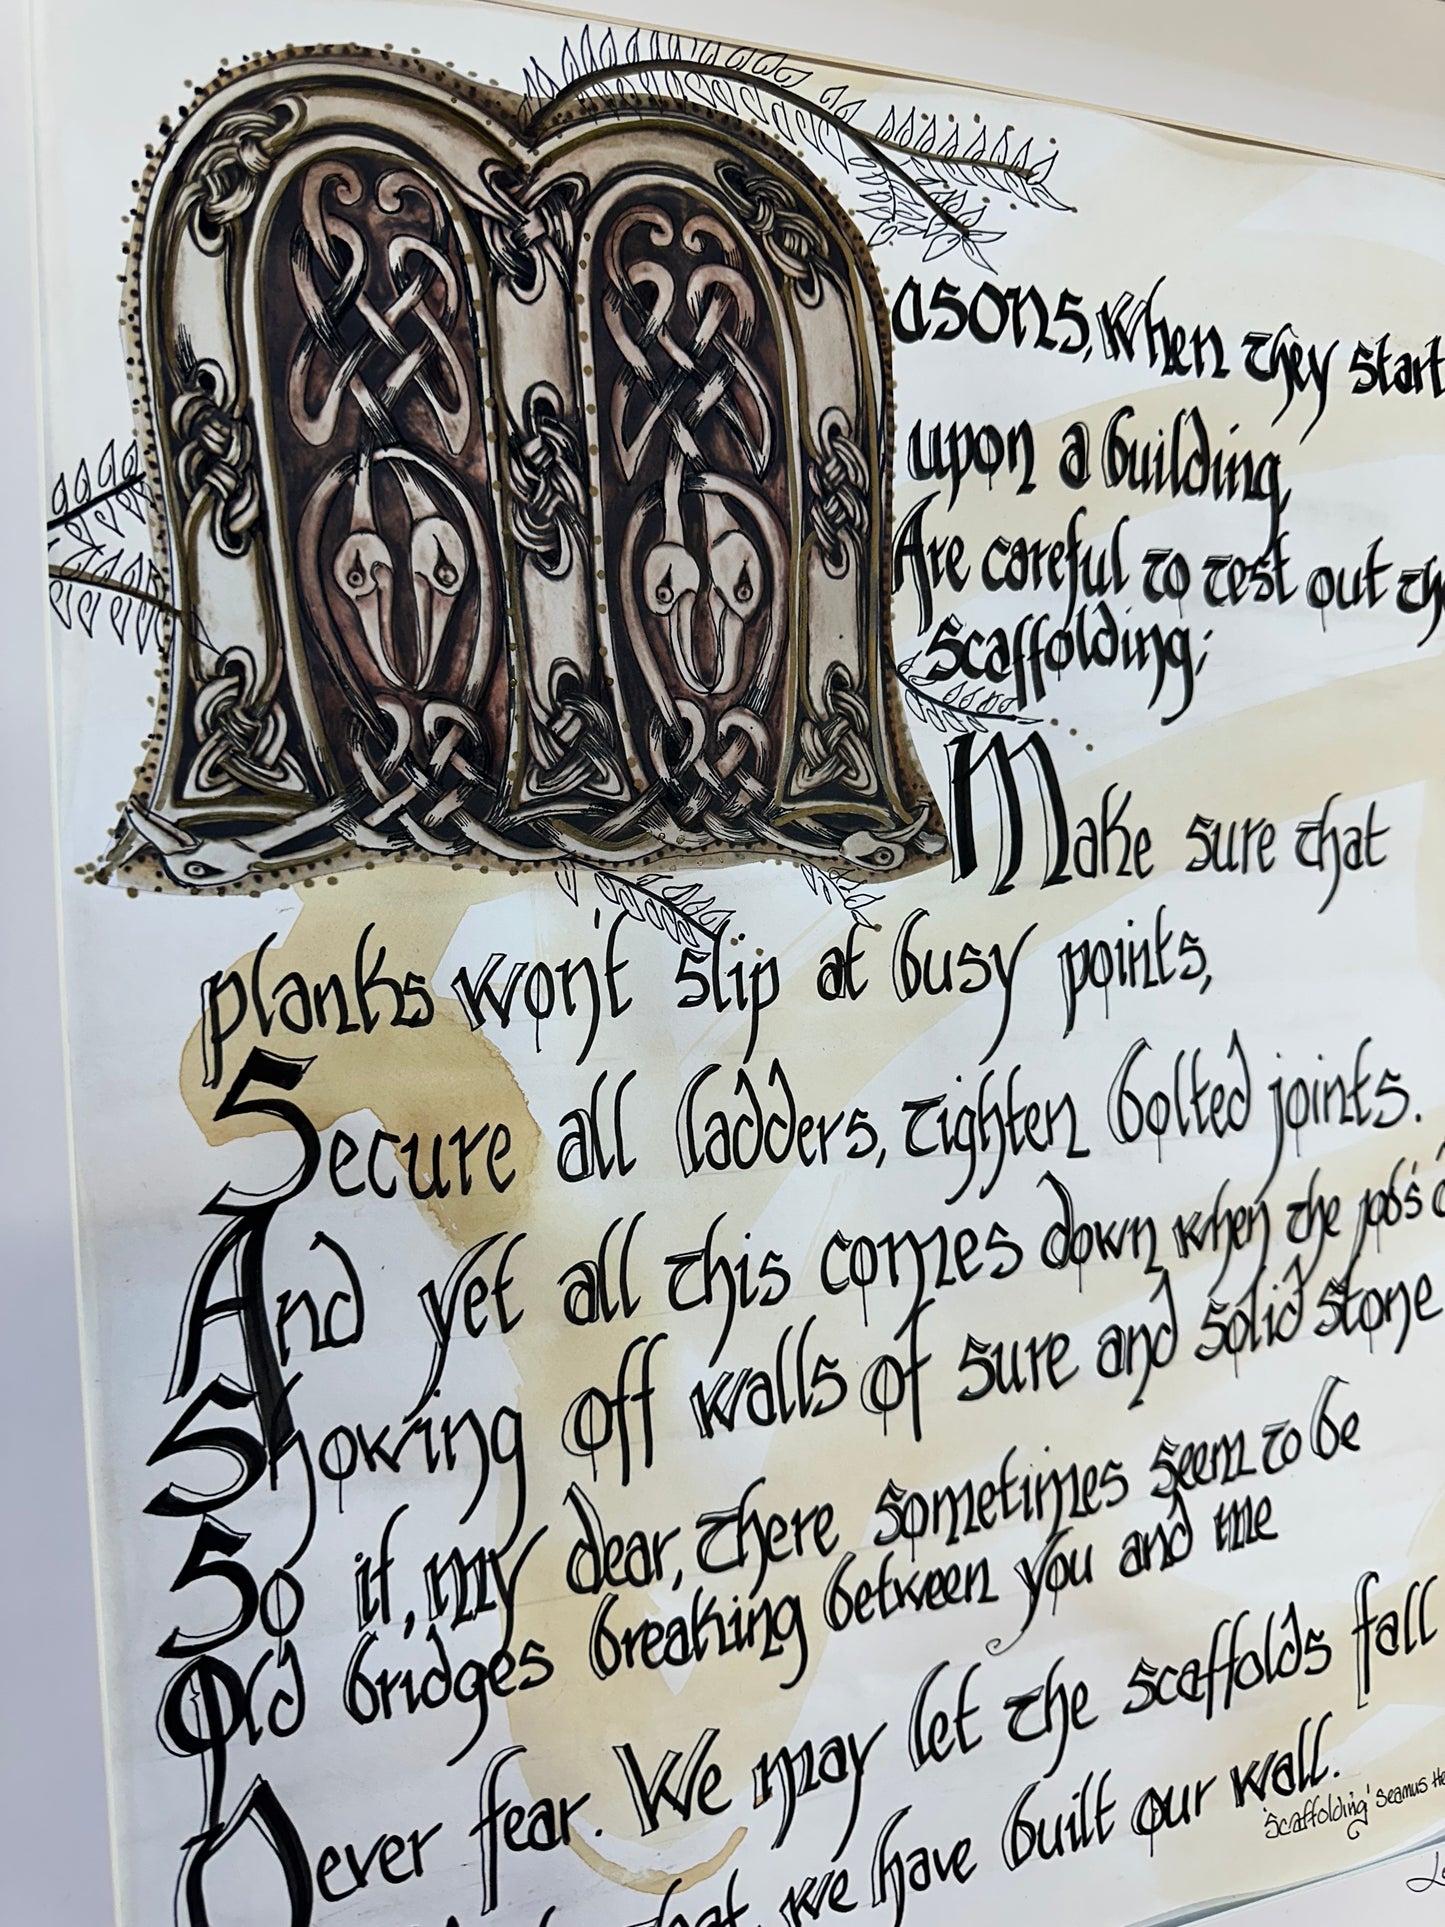 Masons, when they start
upon a building,
Are careful to test out
Scaffolding;
Make sure that
planks won't slip at busy points,
Secure all ladders, tighten bolted joints.
And yet all this comes down when the job's
Showing off walls of sure and solid stone
So if, my dear, there sometimes seem to be
Old bridges breaking between you and me
Never fear. We may let the scaffolds fall
we have built our wall.
'Scaffolding' Seamus